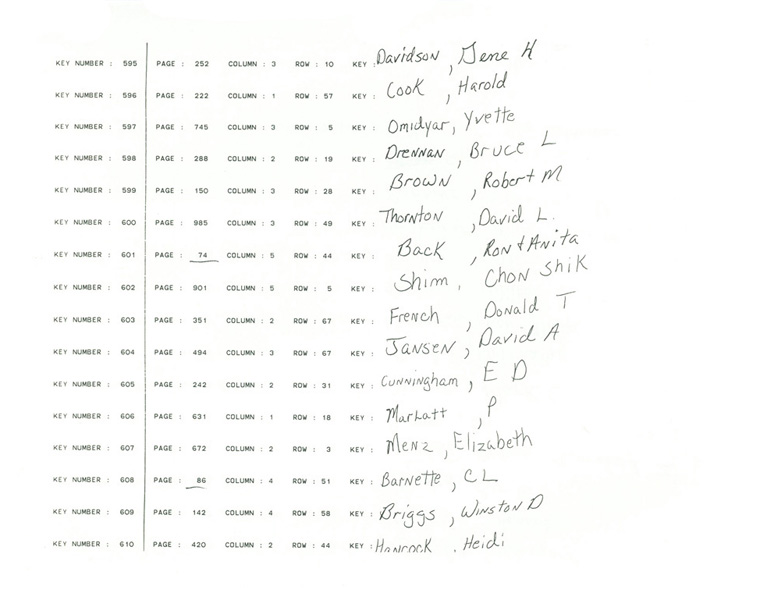 KEY NUMBER : 595 PAGE : 252 COLUMN : 3 ROW : 10 KEY : Davidson, Gene H
KEY NUMBER : 596 PAGE : 222 COLUMN : 1 ROW : 57 KEY : Cook, Harold
KEY NUMBER : 597 PAGE : 745 COLUMN : 3 ROW : 5 KEY : Omidyar, Yvette
KEY NUMBER : 598 PAGE : 288 COLUMN : 2 ROW : 19 KEY : Drennan, Bruce L
KEY NUMBER : 599 PAGE : 150 COLUMN : 3 ROW : 28 KEY : Brown, Robert M
KEY NUMBER : 600 PAGE : 985 COLUMN : 3 ROW : 49 KEY : Thornton, David L.
KEY NUMBER : 601 PAGE : 74 COLUMN : 5 ROW : 44 KEY : Back, Ron & Anita
KEY NUMBER : 602 PAGE : 901 COLUMN : 5 ROW : 5 KEY : Shim, Chon Shik
KEY NUMBER : 603 PAGE : 351 COLUMN : 2 ROW : 67 KEY : French, Donald T
KEY NUMBER : 604 PAGE : 494 COLUMN : 3 ROW : 67 KEY : Jansen, David A
KEY NUMBER : 605 PAGE : 242 COLUMN : 2 ROW : 31 KEY : Cunningham, E D
KEY NUMBER : 606 PAGE : 631 COLUMN : 1 ROW : 18 KEY : Marlatt, P
KEY NUMBER : 607 PAGE : 672 COLUMN : 2 ROW : 3 KEY : Menz, Elizabeth
KEY NUMBER : 608 PAGE : 86 COLUMN : 4 ROW : 51 KEY : Barnette, CL
KEY NUMBER : 609 PAGE : 142 COLUMN : 4 ROW : 58 KEY : Briggs, Winston D
KEY NUMBER : 610 PAGE : 420 COLUMN : 2 ROW : 44 KEY : Hancock, Heidi